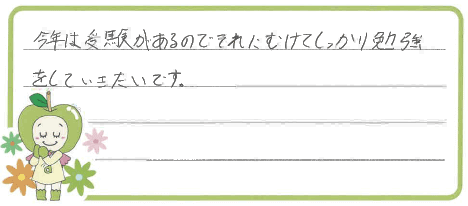 今年は受験があるのでそれにむけてしっかり勉強
をしていきたいです。